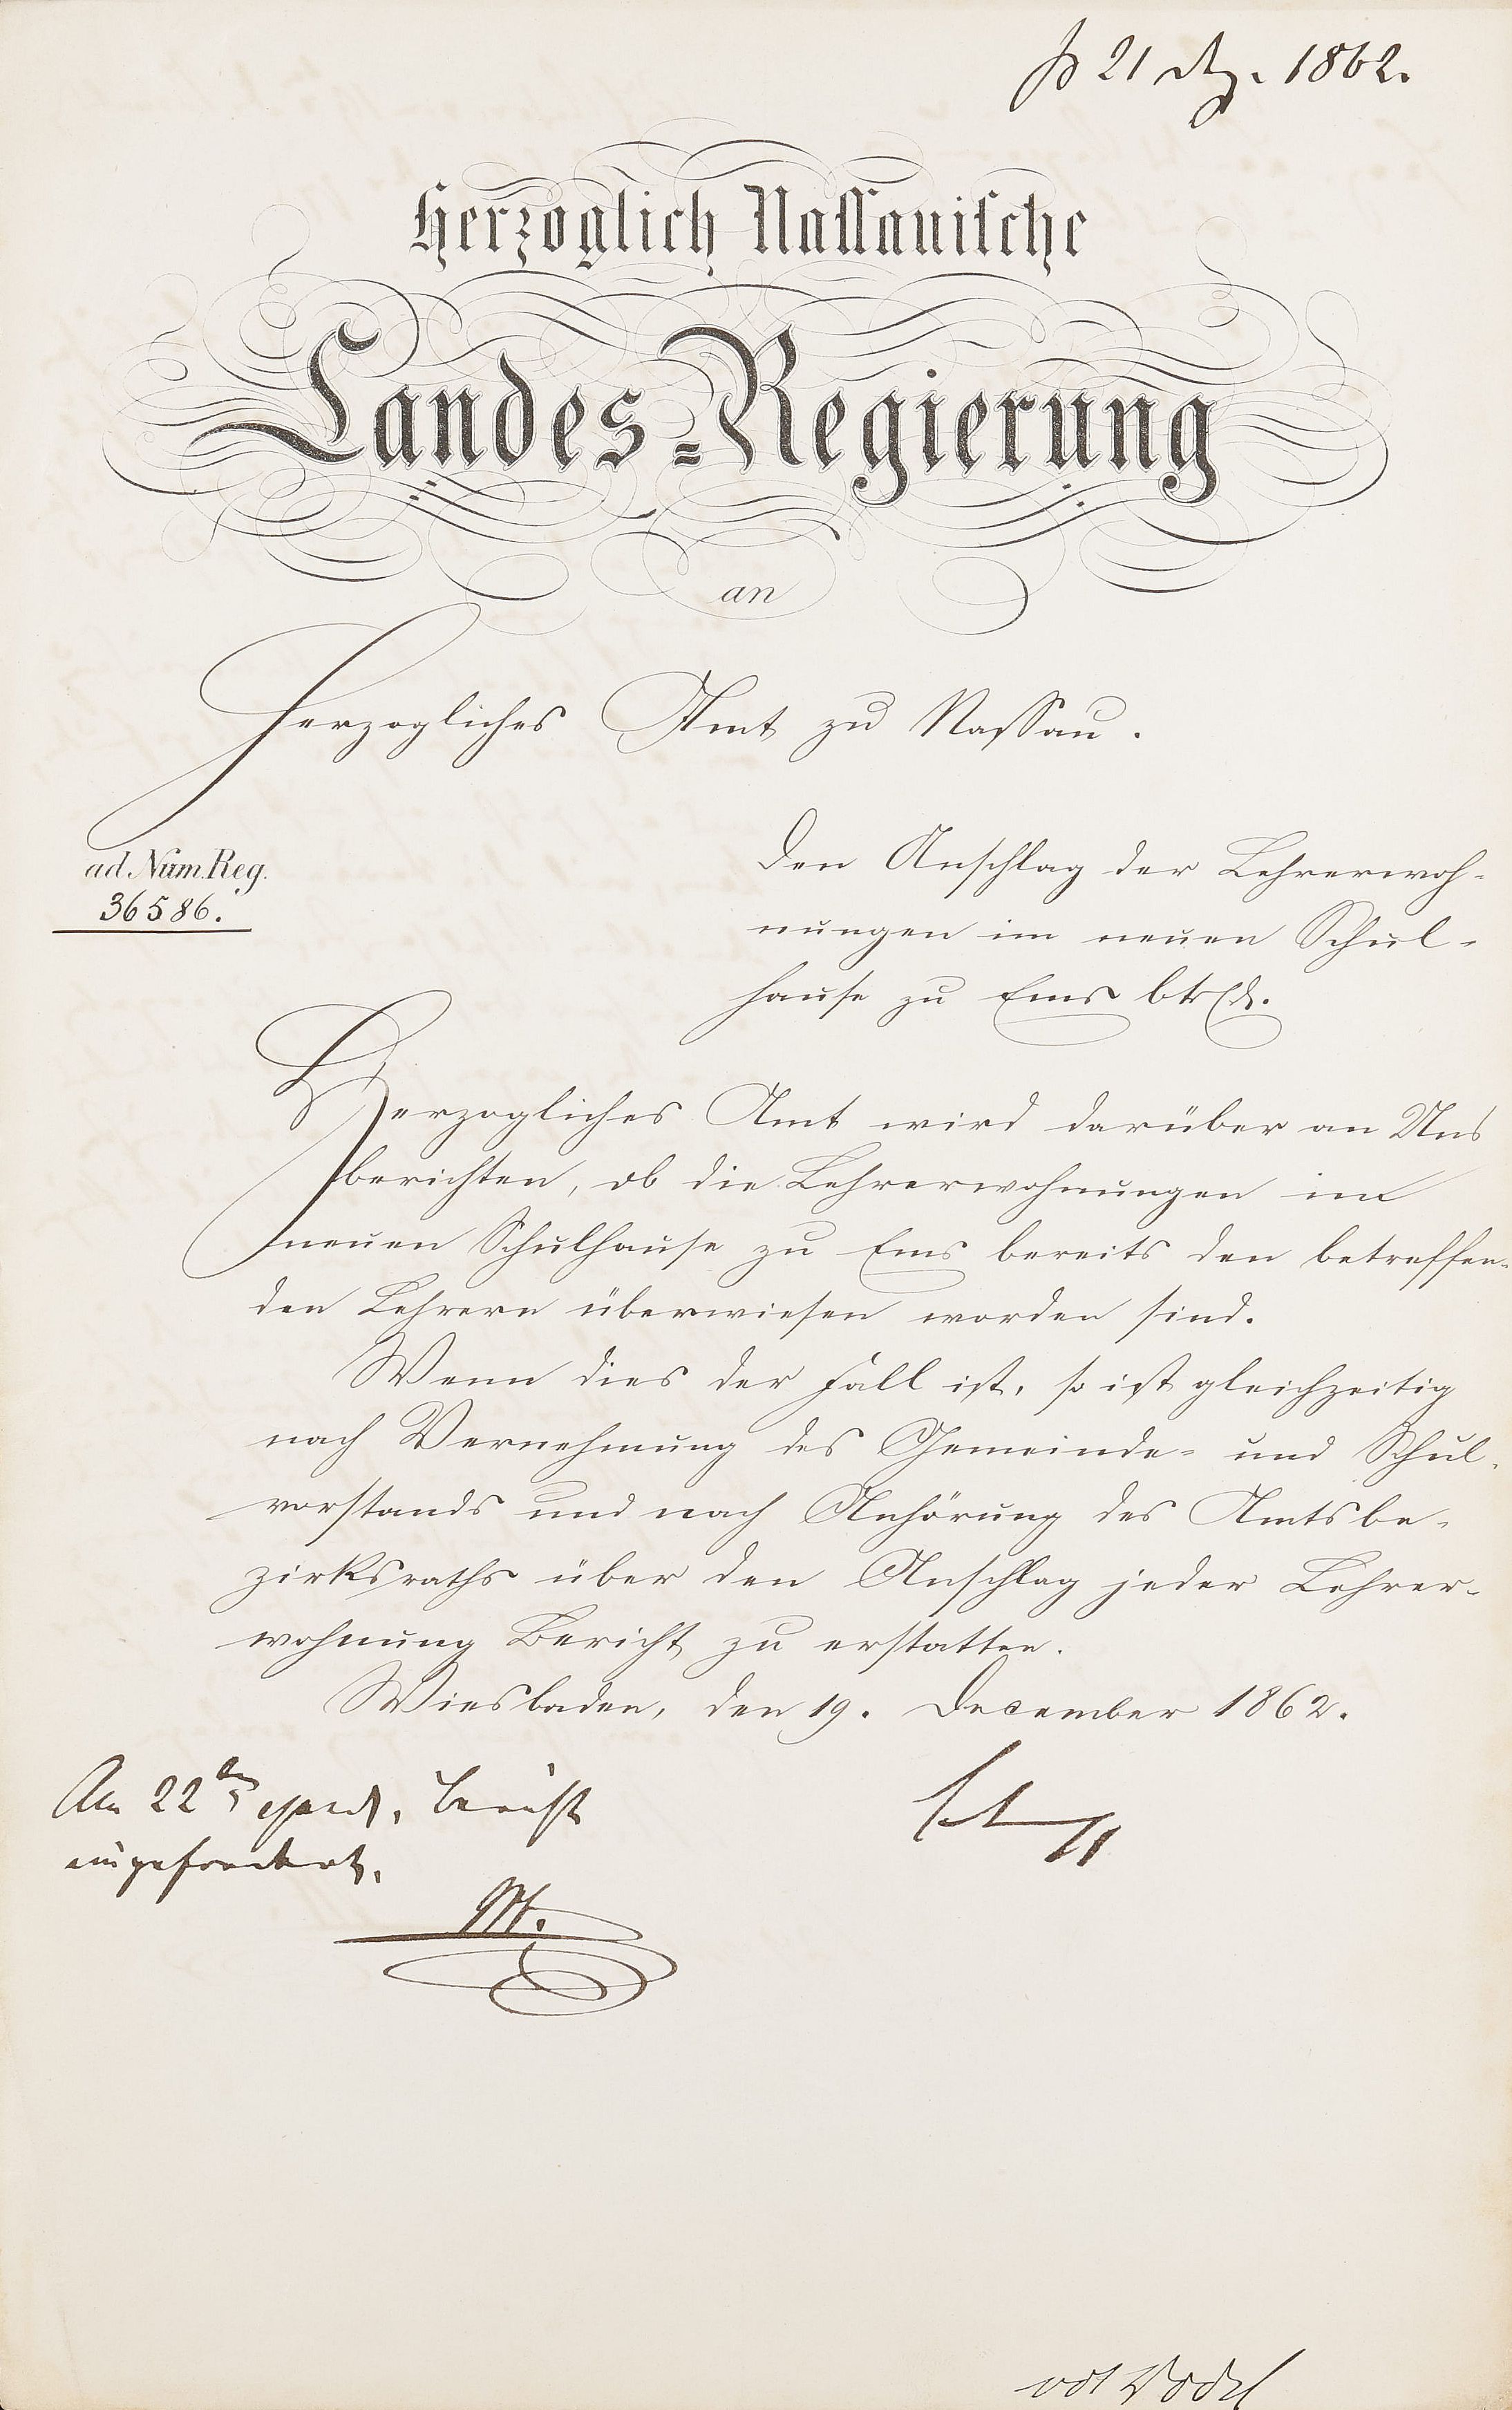 21 Dez. 1862.
Herzoglich Nassauische
Landes-Regierung
an
Herzogliches Amt zu Nassau.
ad Num. Reg.
36586.
Den Anschlag der Lehrerwoh-
nungen im neuen Schul-
hause zu Ems btrfd.
Herzogliches Amt wird darüber an Uns
berichten, ob die Lehrerwohnungen im
neuen Schulhause zu Ems bereits den betreffen-
den Lehrern überwiesen worden sind.
Wenn dies der Fall ist, so ist gleichzeitig
nach Vernehmung des Gemeinde- und Schul-
vorstands und nach Anhörung des Amtsbe-
zirksraths über den Anschlag jeder Lehrer-
wohnung Bericht zu erstatten.
Wiesbaden, den 19. December 1862.
Am 22ten Bericht
eingefordert.
M.
vdt